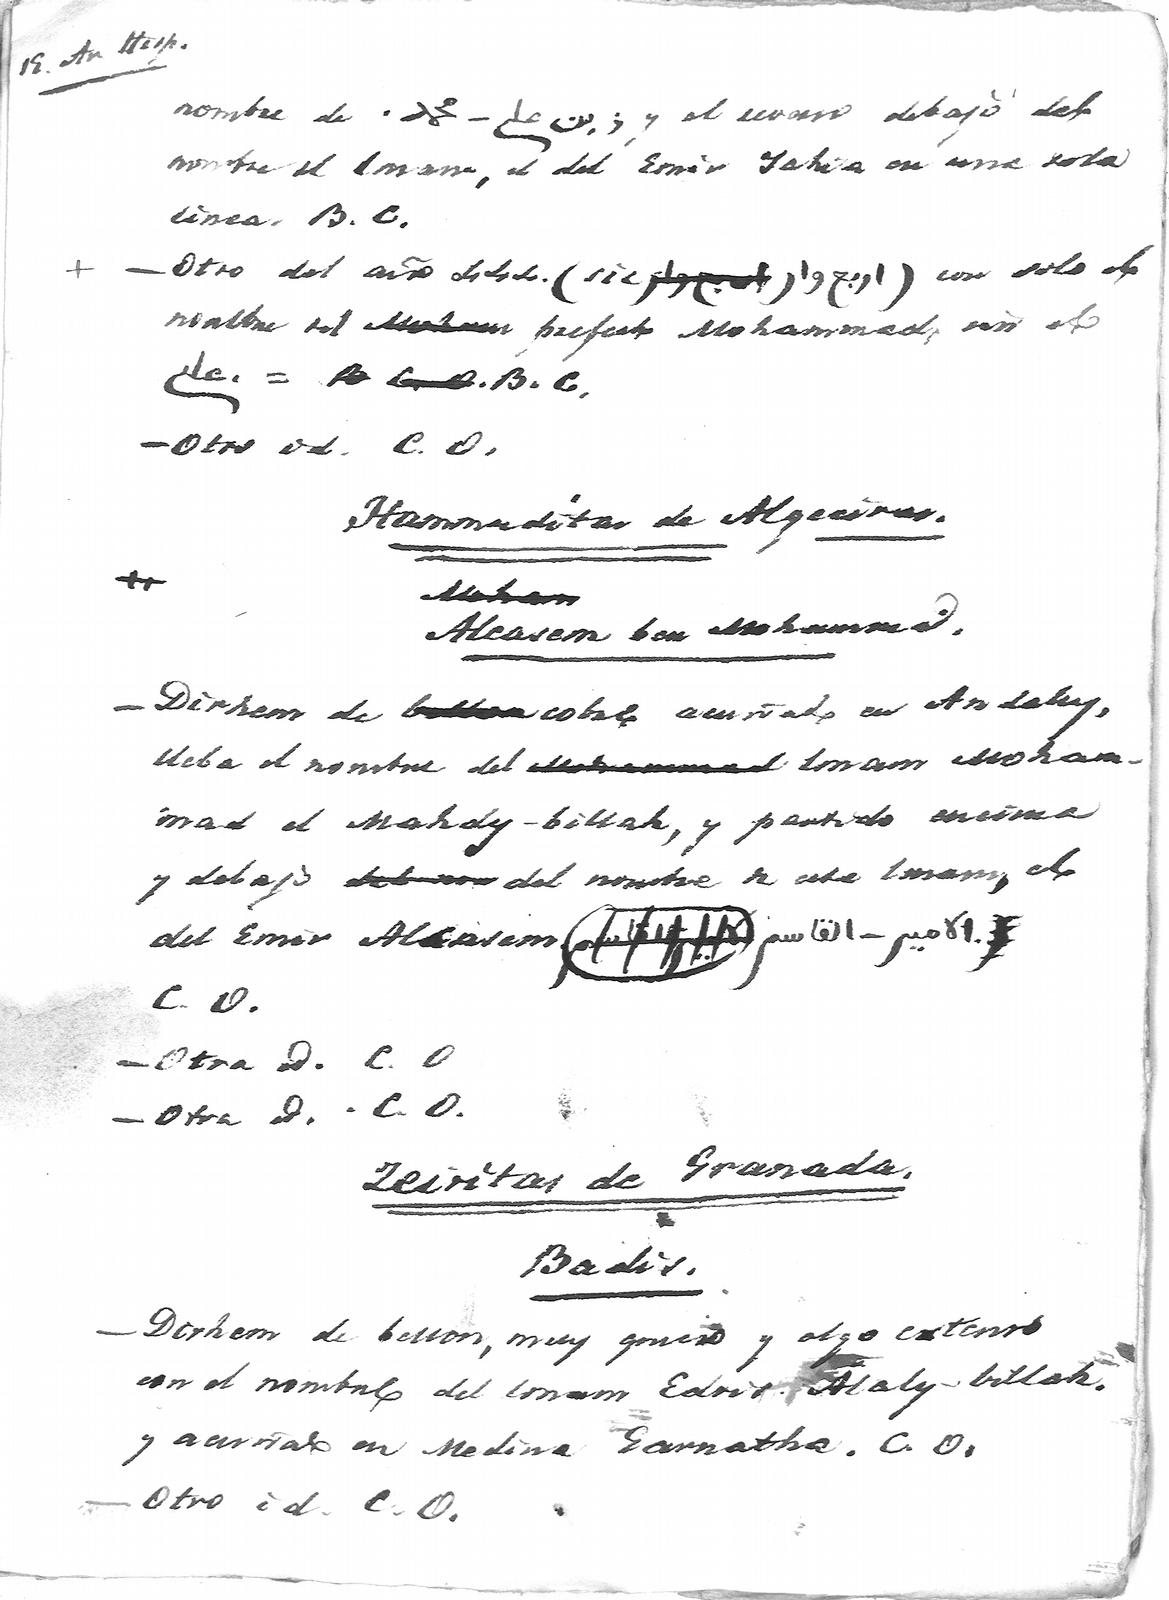 19. Ar. Hisp.
nombre de محمد – بن علي y el reverso debajo del
nombre del Imam, el del Emir Iahia en una sola
linea. B. C.
+ — Otro del año 444. (sic اربع وار) con solo el
nombre del Moham prefecto Mohammad, sin el
علي. = B. C.
— Otro id. C. O.
Hammuditas de Algeciras.
Moham
Alcasem ben Mohammad.
— Dirhem de bellon cobre acuñado en Andalus,
lleba el nombre del Mohammad Imam Moham-
mad el Mahdy-billah, y partido encima
y debajo del nom del nombre de este Imam, el
del Emir Alcasem الامير – القاسم.
C. O.
— Otra id. C. O
— Otra id. C. O.
Zeiritas de Granada.
Badis.
— Dirhem de bellon, muy grueso y algo extenso
con el nombre del Imam Edris Alaly-billah.
y acuñado en Medina Garnatha. C. O.
— Otro id. C. O.